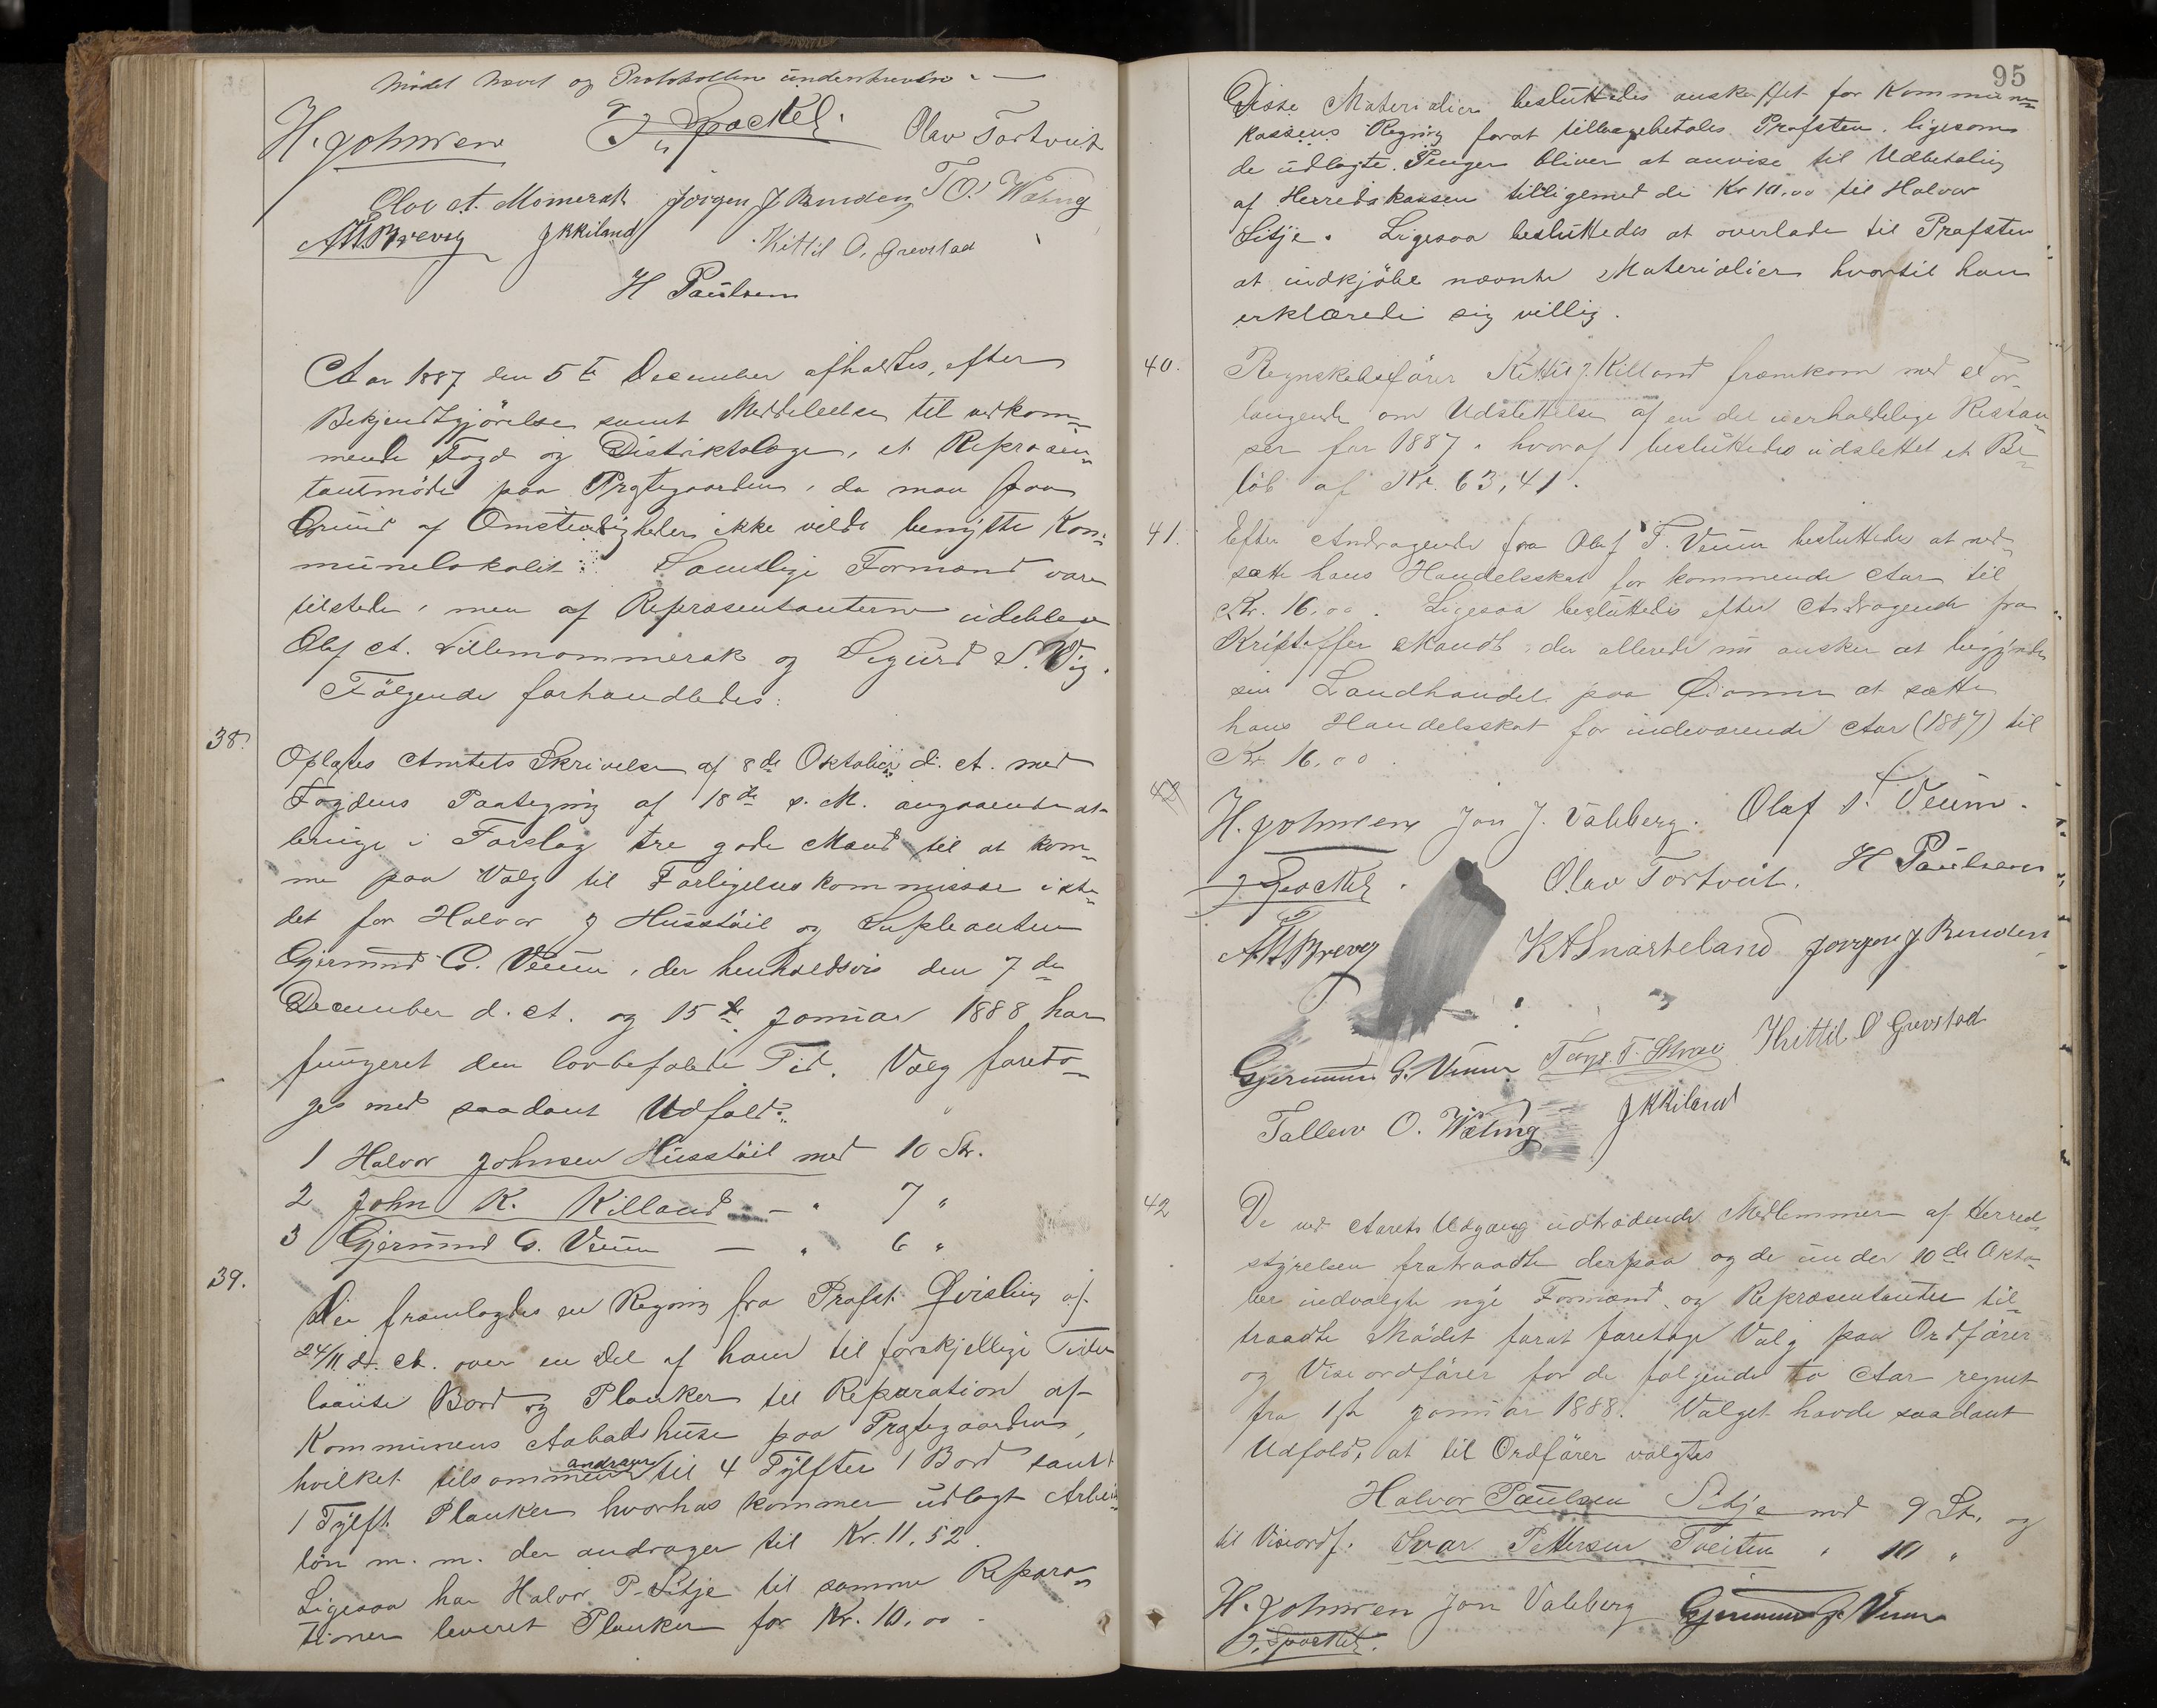 Mødet hævet og Protokollen underskreven. —
H. Johnsen
Olav Tortveit
Olav A. Momrak Jørgen J. Bunden T. O. Wæting
JKKiland
Kittil O. Grevstad
H Paulsen
Aar 1887 den 5te December afholdtes, efter
Bekjendtgjørelse samt Meddelelse til vedkom-
mende Fogd og Distriktslæge, et Repræsen-
tantmøde paa Prgtegaarden, da man paa
Grund af Omstændigheder ikke vilde benytte Kom-
munelokalet. Samtlige Formænd vare
tilstede, men af Repræsentanterne udeblev
Olaf A. Lillemommerak og Sigurd S. Vig.
Følgende forhandledes:
38.
Oplæstes Amtets Skrivelse af 8de Oktober d. A. med
Fogdens Paategning af 18de s. M. angaaende at
bringe i Forslag tre gode Mænd til at kom-
me paa Valg til Forligelseskommissær iste-
det for Halvor J Husstøil og Supleanten
Gjermund G. Veum, der henholdsvis den 7de
December d. A. og 15de Januar 1888 har
fungeret den lovbefalede Tid. Valg foreto-
ges med saadant Udfald:
1 Halvor Johnsen Husstøil med 10 St.
2 John K. Killand — " 7 "
3 Gjermund G. Veum — " 6 "
39.
Der fremlagdes en Regning fra Profst Qvisling af
24/11 d. A. over en Del af ham til forskjellige Tider
laante Bord og Planker til Reparation af
Kommunens Aabodshuse paa Prgtegaarden,
hvilket tilsammen andrager til 4 Tylfter 1 Bord samt
1 Tylft Planker hvorhos kommer udlagt Arbeids-
løn m. m. der andrager til Kr. 11,52.
Ligesaa har Halvor P. Sitje til samme Repara-
tioner leveret Planker for Kr. 10,00 -
95
Disse Materialier besluttedes anskaffet for Kommune-
kassens Regning forat tilbagebetales Profsten, ligesom
de udlagte Penger bliver at anvise til Udbetaling
af Herredskassen tilligemed de Kr 10.00 til Halvor
Sitje. Ligesaa besluttedes at overlade til Profsten
at indkjøbe nævnte Materialier hvortil han
erklærede sig villig.
40.
Regnskabsfører Kittil J. Killand fremkom med For-
langende om Udslettelse af en del uerholdelige Restan-
ser for 1887, hvoraf besluttedes udslettet et Be-
løb af Kr. 63,41.
41.
Efter Andragende fra Olaf T. Veum besluttedes at ned-
sætte hans Handelsskat for kommende Aar til
Kr. 16,00. Ligesaa besluttedes efter Andragende fra
Kristoffer Mandt, der allerede nu ønsker at begynde
sin Landhandel paa Øianne at sætte
hans Handelsskat for indeværende Aar (1887) til
Kr. 16,00.
42
H. Johnsen Jon J. Valeberg. Olaf T. Veum.
Olav Tortveit. H Paulsen
K A Snarteland Jørgen J. Bunden
Gjermund G. Veum Kittil O Grevstad
Tallev O. Wæting JKKiland
42
De ved Aarets Udgang udtrædende Medlemmer af Herred-
styrelsen fratraadte derpaa og de under 10de Okto-
ber indvalgte nye Formænd og Repræsentanter til-
traadte Mødet forat foretage Valg paa Ordfører
og Viseordfører for de følgende to Aar regnet
fra 1ste Januar 1888. Valget havde saadant
Udfald, at til Ordfører valgtes
Halvor Paulsen Sitje med 9 St. og
til Viseordf. Ivar Pettersen Tveiten " 10 "
H. Johnsen Jon Valeberg Gjermund G. Veum